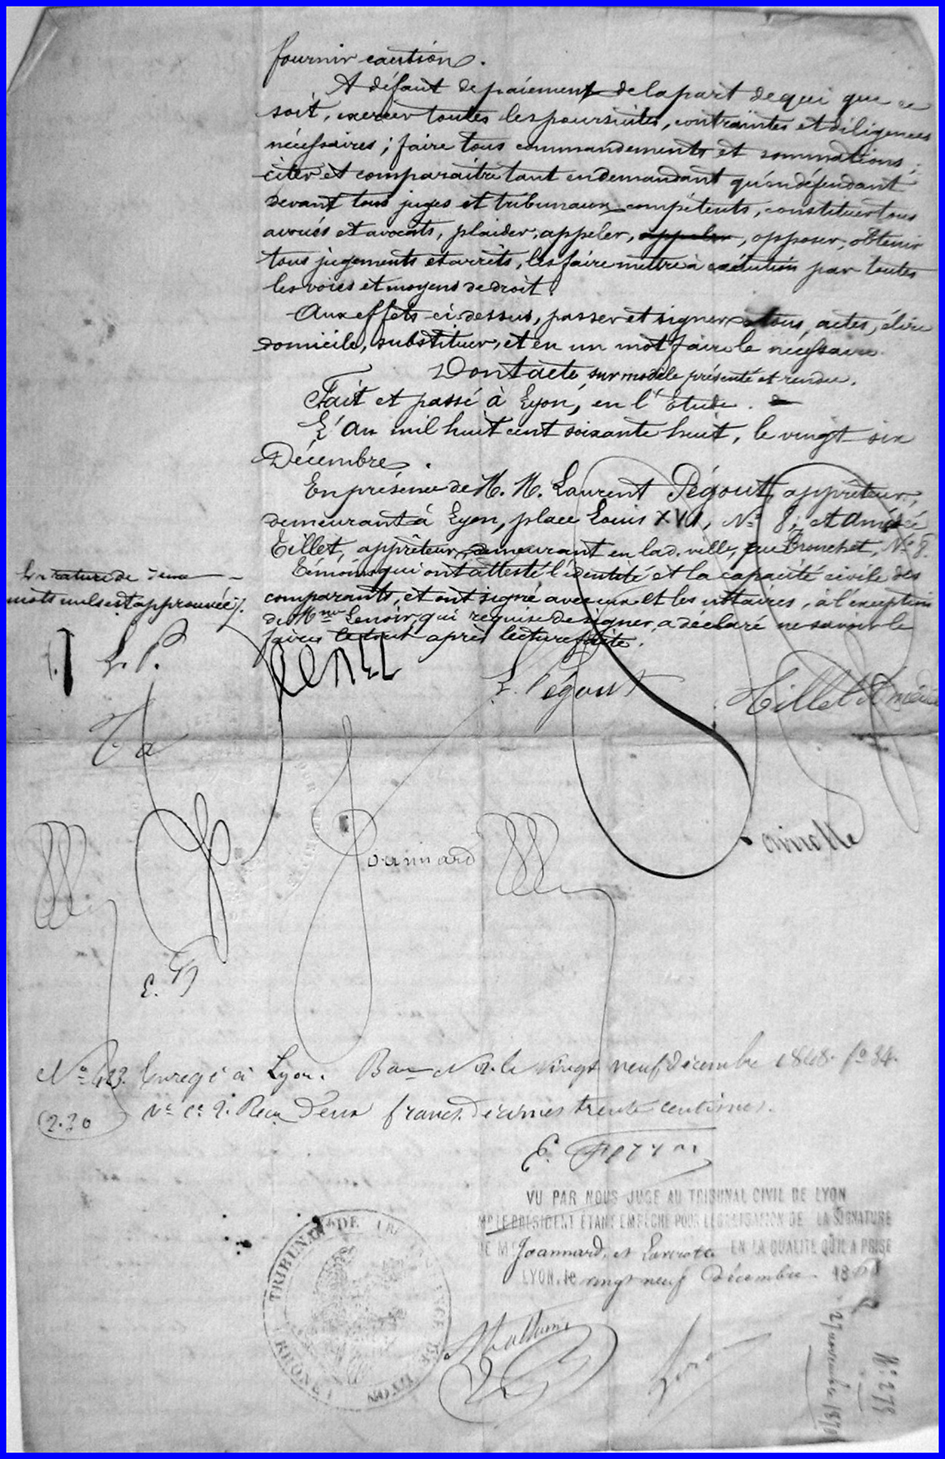 fournir caution.
A défaut de paiement de la part de qui que ce
soit, exercer toutes les poursuites, contraintes et diligences
nécessaires; faire tous commandements et sommations;
citer et comparaître tant en demandant qu'en défendant
devant tous juges et tribunaux compétents, constituer tous
avoués et avocats, plaider, appeler, appeler, opposer, obtenir
tous jugements et arrêts, les faire mettre à exécution par toutes
les voies et moyens de droit.
Aux effets ci-dessus, passer et signer tous actes, élire
domicile, substituer, et en un mot faire le nécessaire.
Dont acte sur modèle présenté et rendu.
Fait et passé à Lyon, en l'Etude.
L'An mil huit cent soixante huit, le vingt six
Décembre.
En présence de M. M. Laurent Pégout, apprêteur,
demeurant à Lyon, place Louis XVI, No 8; et Amédée
Tillet, apprêteur, demeurant en lad. ville, rue No 8.
Témoins qui ont attesté l'identité et la capacité civile des
comparants, et ont signé avec eux et les notaires, à l'exception
de Mme Lenoir, qui requise de signer, a déclaré ne savoir le
faire le tout après lecture faite.
La rature de deux
mots nuls est approuvée
L. P.
L. Pégout
Tillet Amédée
T a
Joannard
No 423. Enregé à Lyon. le vingt neuf décembre 1868. fo 84.
Vo ce 2. Reçu Deux francs décimes trente centimes.
(2.30
VU PAR NOUS JUGE AU TRIBUNAL CIVIL DE LYON
MR LE PRÉSIDENT ÉTANT EMPÊCHÉ POUR LÉGALISATION DE LA SIGNATURE
DE Mes Joannard et Laverotte EN LA QUALITÉ QU'IL A PRISE
LYON, le vingt neuf Décembre 1868
TRIBUNAL DE LYON
(RHÔNE)
No 278